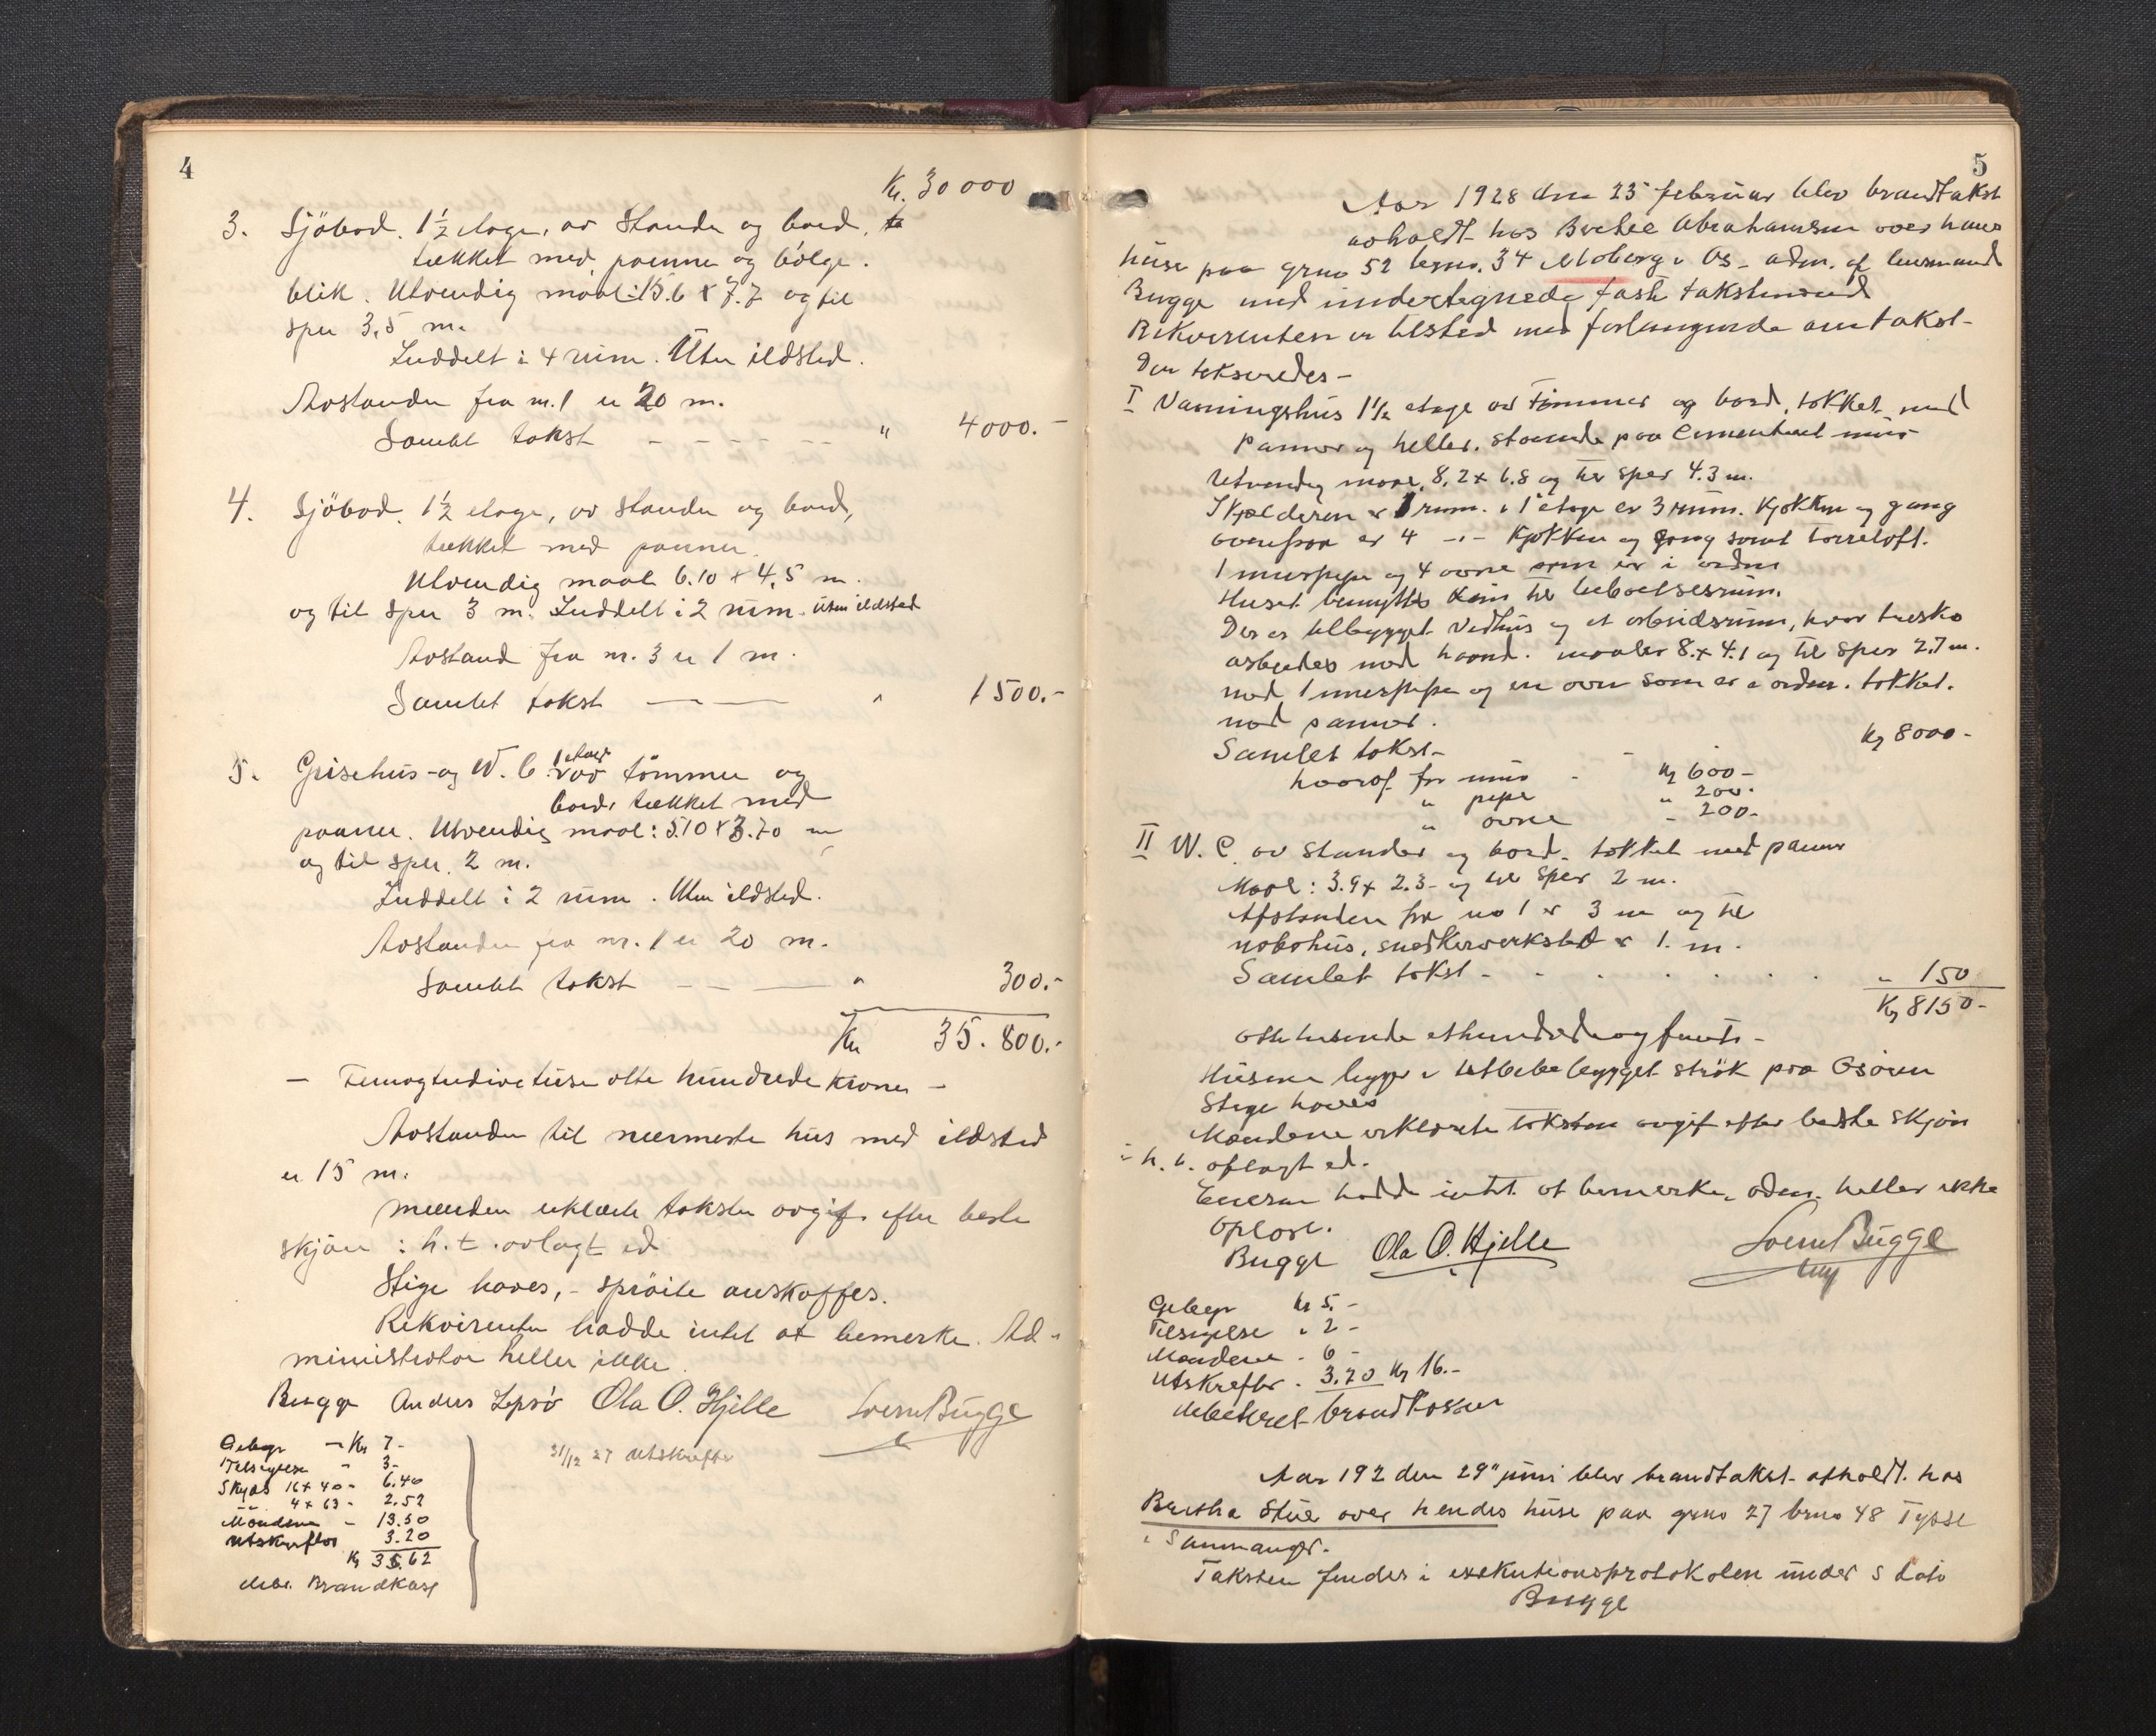 4
Kr. 30 000
3. Sjöbod. 1½ etage, av stander og bord,
tækket med panner og bölge-
blik. Utvendig maal: 15.6 x 7.7 og til
sper 3,5 m.
Inddelt i 4 rum. Uten ildsted.
Avstanden fra nr. 1 er 20 m.
Samlet takst — — — — — " 4000.-
4. Sjöbod. 1½ etage, av stander og bord,
tækket med panner.
Utvendig maal 6.10 x 4,5 m.
og til sper 3 m. Inddelt i 2 rum. uten ildsted
Avstand fra nr. 3 er 1 m.
Samlet takst — — " 1500.-
5. Grisehus- og W. C. 1 etage av tömmer og
bord, tækket med
panner. Utvendig maal: 5.10 x 3.70 m
og til sper. 2 m.
Inddelt i 2 rum. Uten ildsted.
Avstanden fra nr. 1 er 20 m.
Samlet takst — — — " 300.-
Kr 35.800.-
— Femogtredivetuse otte hundrede kroner —
Avstanden til nærmeste hus med ildsted
er 15 m.
mænden erklærte taksten avgit efter beste
skjön i h. t. avlagt ed
Stige haves, - spröite anskaffes.
Rekvirenten hadde intet at bemerke. Ad-
ministrator heller ikke.
Bugge Anders Lepsö Ola O. Hjelle Bugge
Gebyr — Kr 7-
Tilsigelse " 3-
Skyds 16 x 40 - 6.40
-"- 4 x 63 - 2.52
Mændene - 13.50
Utskrifter 3.20
Kr 35.62
debt. Brandkase
31/12 27 utskrifter
5
Aar 1928 den 25 februar blev brandtakst
avholdt hos Berthel Abrahamsen over hans
huse paa grno 52 brno. 34 Moberg i Os - adm. af lensmand
Bugge med undertegnede faste takstmænd
Rekvirenten er tilsted med forlangende om takst-
Der takseredes -
I Vaaningshus 1½ etage av tömmer og bord, tækket med
panner og heller. staaende paa cementert mur
Utvendig maal, 8.2 x 6.8 og til sper 4.3 m.
I Kjælderen er 1 rum. i 1ste etage er 3 rum. kjøkken og gang
ovenpaa er 4 -"- kjøkken og gang samt törreloft.
1 murpipe og 4 ovne som er i orden
Huset benyttes kun til beboelsesrum.
Der er tilbygget vedhus og et arbeidsrum, hvor træsko
arbeides med haand. maaler 8. x 4.1 og til sper 2.7 m.
med 1 murpipe og en ovn som er i orden. tækket.
med panner.
Samlet takst - Kr 8000-
hvorof for mur - Kr 600-
" pipe " 200-
" ovne - 200-
II W. C. av stander og bord. tækket med panner
Maal: 3.9 x 2.3- og til sper 2 m.
Afstanden fra no 1 er 3 m og til
nabohus, snedkerverksted er 1. m.
Samlet takst - . . . . . " 150
Kr 8150-
otte tusende ethundredeogfemti-
Husene ligger i tætbebebygget strök paa Osören
Stige haves
Mændene erklærte taksten avgit efter bedste skjön
i h. t. aflagt ed.
Eieren hadde intet at bemerke, adm. heller ikke
Oplæst.
Bugge Ola O. Hjelle Bugge
Gebyr kr 5.-
Tilsigelse " 2-
Mændene - 6-
Utskrefter - 3.20 Kr 16.-
debiteret brandkassen
Aar 192 den 29" juni blev brandtakst afholdt hos
Bertha Stue over hendes huse paa grno 27 brno 48 Tysse
i Samnanger.
Taksten findes i exekutionsprotokolen under s dato
Bugge